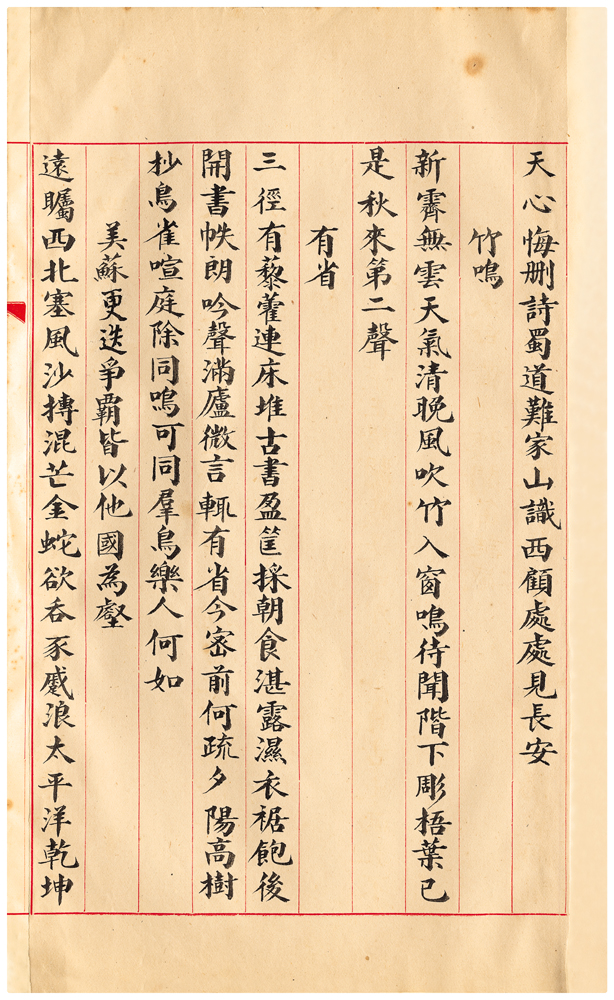 天心悔删詩蜀道難家山識西顧處處見長安
竹鳴
新霽無雲天氣清晚風吹竹入窗鳴待聞階下彫梧葉已
是秋來第二聲
有省
三徑有藜藿連床堆古書盈筐採朝食湛露濕衣裾飽後
開書帙朗吟聲滿廬微言輒有省今密前何疏夕陽高樹
杪鳥雀喧庭除同鳴可同羣鳥樂人何如
美蘇更迭爭霸皆以他國為壑
遠矚西北塞風沙摶混芒金蛇欲吞豕蹙浪太平洋乾坤